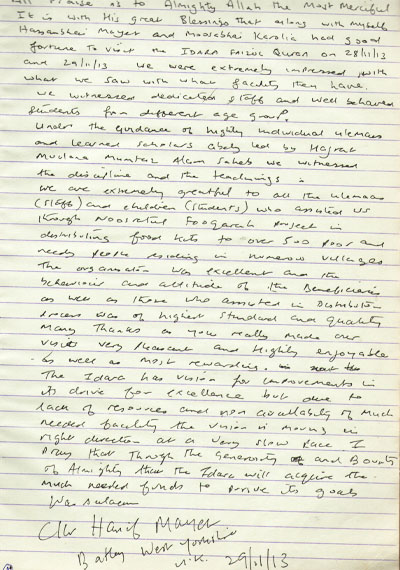 All Praise is to Almighty Allah the Most Merciful
It is with His great Blessings that along with myself
Hassanbhai Mayet and Moosabhai Karolia had good
fortune to visit the IDARA FAIZUL QURAN on 28/11/13
and 29/11/13 we were extremely impressed with
what we saw with what facility they have.
we witnessed dedicated staff and well behaved
students from different age group.
Under the guidance of highly individual ulemaas
and learned scholars ably led by Hazrat
Mulana Mumtaz Alam Saheb we witnessed
the discipline and the teachings.
we are extremely greatful to all the ulemaas
(staffs) and children (students) who assisted us
through Noorani Foogarah Project in
distributing food kits to over 500 poor and
needy people residing in numerous villages
The organisation was excellent and the
behaviour and attitude of the Beneficiaries
as well as those who assisted in Distribution
process was of highest standard and quality
Many Thanks as you really made our
visit very pleasant and Highly enjoyable
as well as most rewarding.
The Idara has vision for improvements in
its drive for excellence but due to
lack of resources and non availability of much
needed facility the vision is moving in
right direction at a very slow Pace I
Pray that through the Generosity and Bounty
of Almighty that the Idara will acquire the
Much needed funds to its goals
Was salaam
Cllr Hanif Mayet
Batley West Yorkshire
U.K. 29/11/13